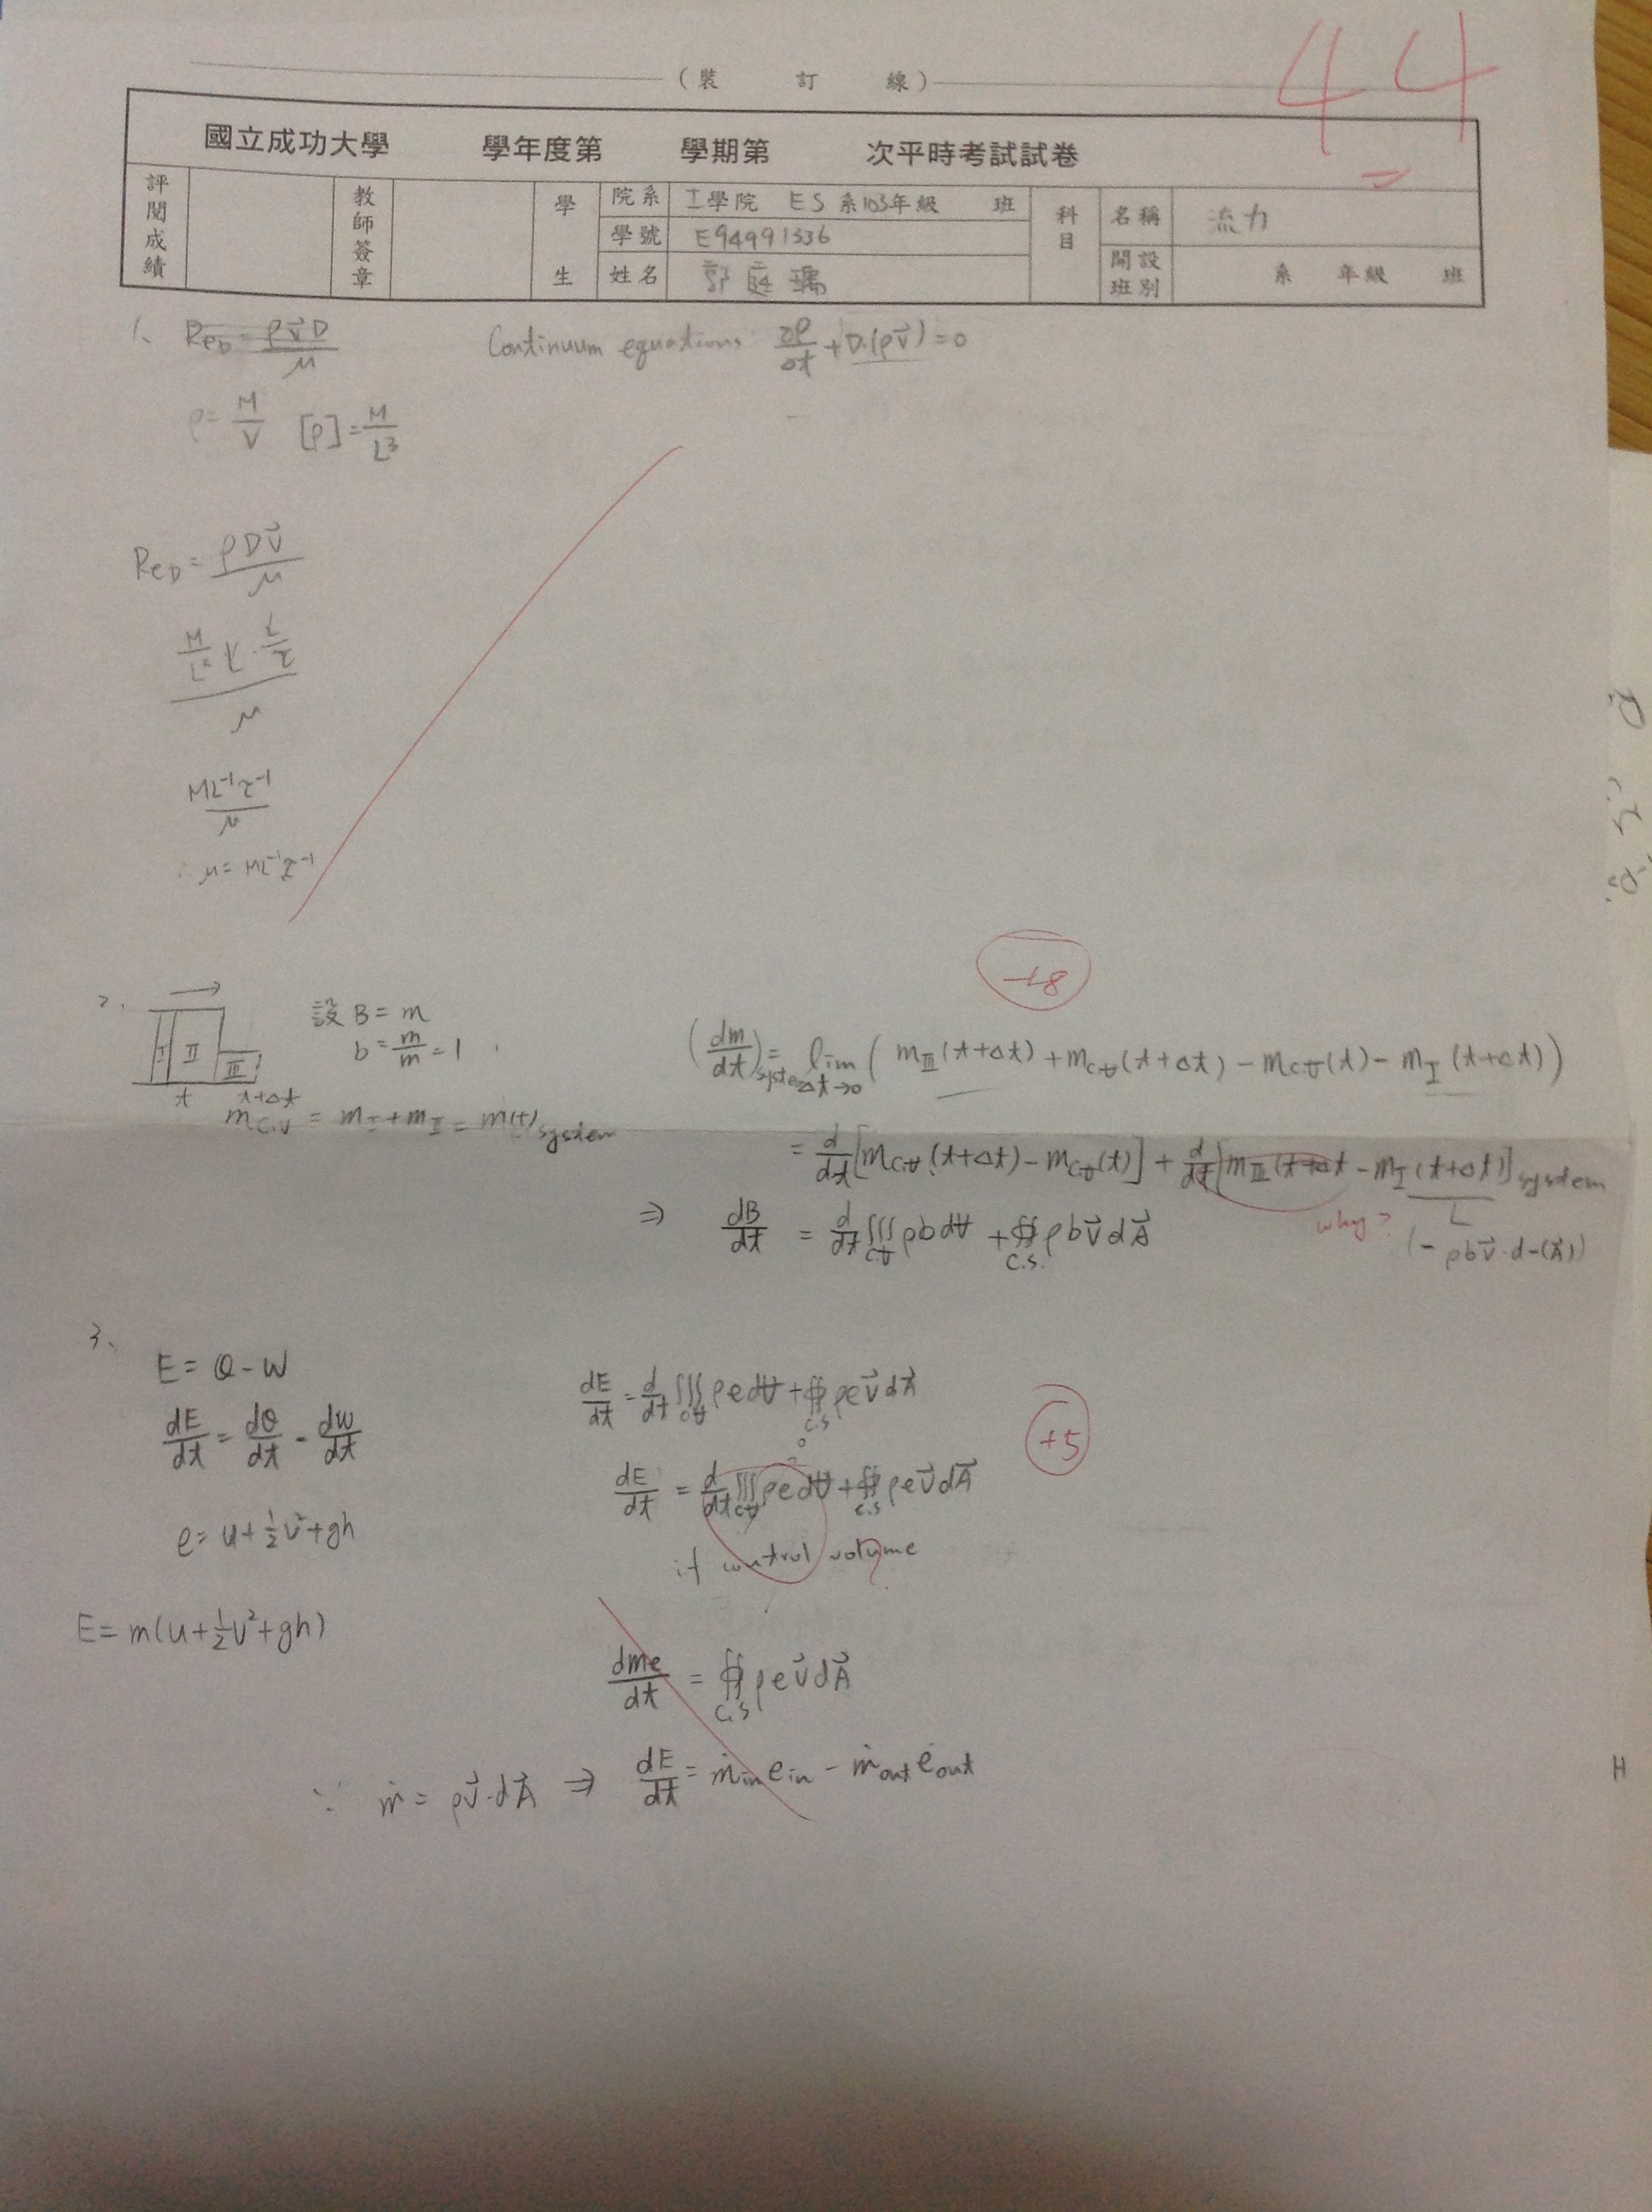 44
(裝 訂 線)
國立成功大學 學年度第 學期第 次平時考試試卷
評閱成績 教師簽章 學生 院系 工學院 ES系103年級 班 科目 名稱 流力
學號 E94991336
姓名 開設班別 系 年級 班
1、 Re_D = ρV⃗D/μ Continuum equations: ∂ρ/∂t + ∇·(ρV⃗) = 0
ρ = M/V [ρ] = M/L³
Re_D = ρDV⃗/μ
μ
ML⁻¹τ⁻¹/μ
∴ μ = ML⁻¹τ⁻¹
+8
2. I II III 設 B = m
b = m/m = 1
t t+Δt
m_C.V = m_I + m_II = m(t)_system
(dm/dt)_system = lim_Δt→0 (m_III(t+Δt) + m_CV(t+Δt) − m_CV(t) − m_I(t+Δt))
= d/dt[m_CV(t+Δt) − m_CV(t)] + d/dt[m_III(t+Δt − m_I(t+Δt)]_system
why?
(−ρbV⃗·d−(A⃗))
⇒ dB/dt = d/dt ∭_CV ρb dV + ∯_C.S. ρbV⃗dA⃗
3、
E = Q − W
dE/dt = dQ/dt − dW/dt
e = u + ½V² + gh
E = m(u + ½V² + gh)
dE/dt = d/dt ∭_CV ρe dV + ∯_C.S ρeV⃗dA⃗
+5
dE/dt = d/dt ∭_CV ρe dV + ∯_C.S ρeV⃗dA⃗
if control volume
?
dme/dt = ∯_C.S ρeV⃗dA⃗
∵ ṁ = ρV⃗·dA⃗ ⇒ dE/dt = ṁ_in e_in − ṁ_out e_out
H